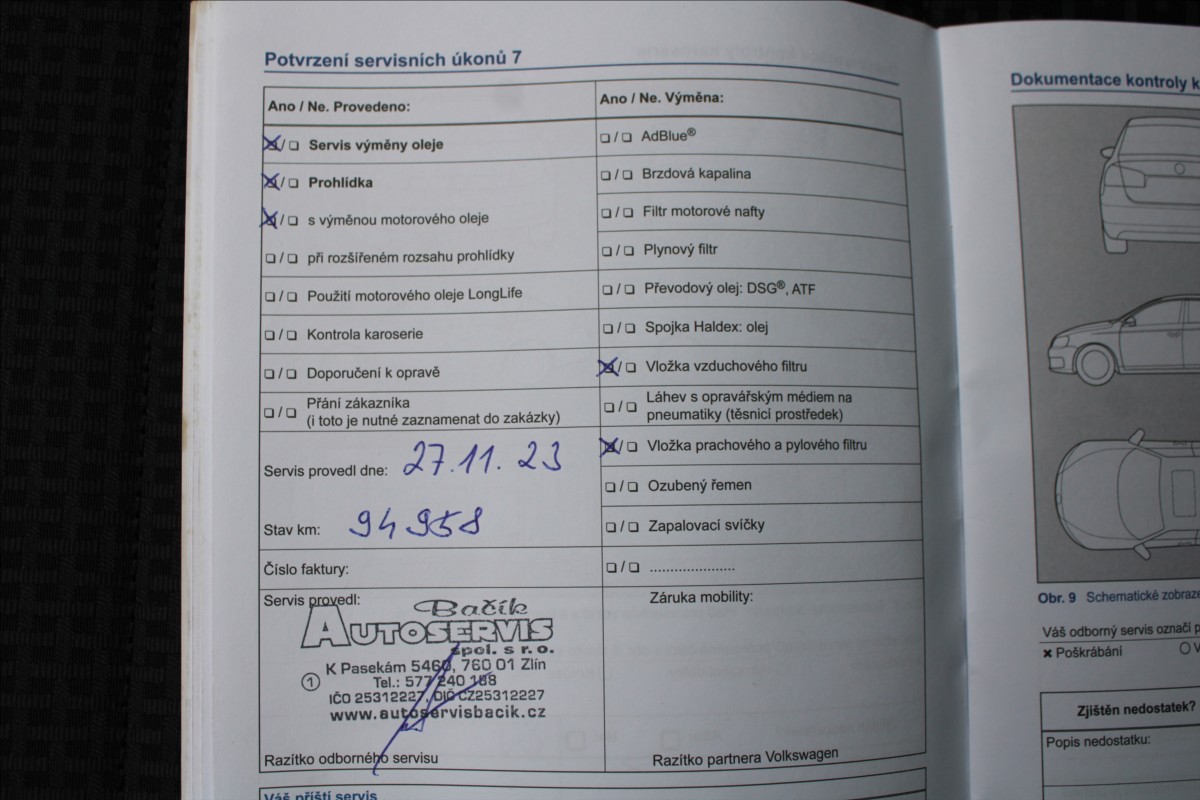 Potvrzení servisních úkonů 7
Ano / Ne. Provedeno:
Servis výměny oleje
Prohlídka
s výměnou motorového oleje
při rozšířeném rozsahu prohlídky
Použití motorového oleje LongLife
Kontrola karoserie
Doporučení k opravě
Přání zákazníka
(i toto je nutné zaznamenat do zakázky)
Servis provedl dne: 27.11.23
Stav km: 94958
Číslo faktury:
Servis provedl:
Bačík
AUTOSERVIS
spol. s r.o.
K Pasekám 5460, 760 01 Zlín
1 Tel.: 577 240 188
IČO 25312227, DIČ CZ25312227
www.autoservisbacik.cz
Razítko odborného servisu
Ano / Ne. Výměna:
AdBlue®
Brzdová kapalina
Filtr motorové nafty
Plynový filtr
Převodový olej: DSG®, ATF
Spojka Haldex: olej
Vložka vzduchového filtru
Láhev s opravářským médiem na
pneumatiky (těsnicí prostředek)
Vložka prachového a pylového filtru
Ozubený řemen
Zapalovací svíčky
.....................
Záruka mobility:
Razítko partnera Volkswagen
Váš příští servis
Dokumentace kontroly k
Obr. 9 Schematické zobraze
Váš odborný servis označí p
× Poškrábání
Zjištěn nedostatek?
Popis nedostatku: